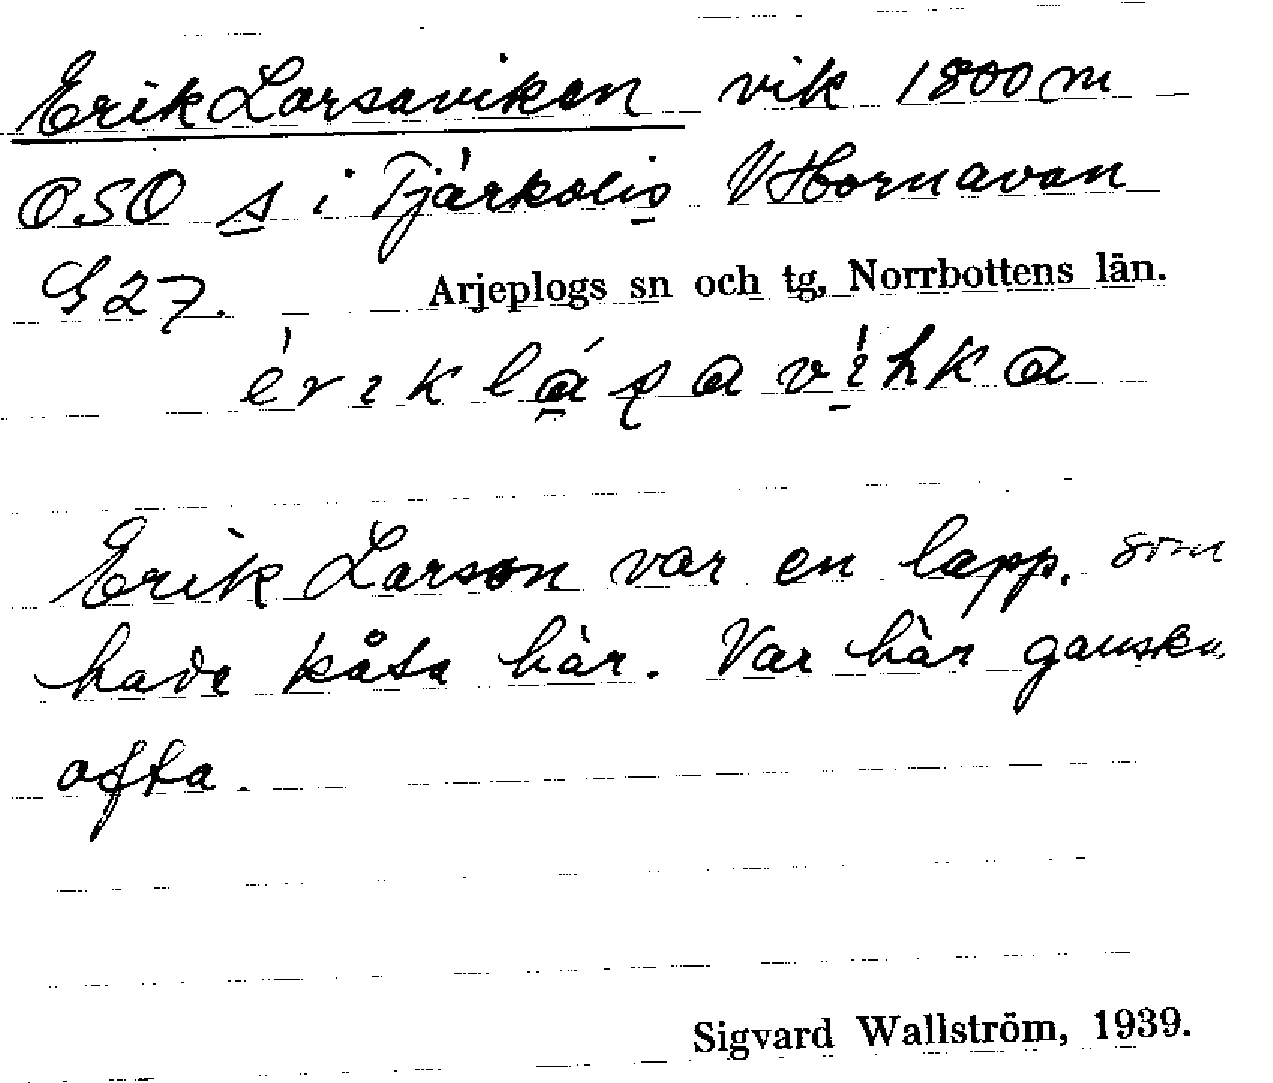 Erik Larsaviken vik 1800 m
OSO s i Tjärkolis V Hornavan
G 27. Arjeplogs sn och tg, Norrbottens län.
Erik Larson var en lapp. som
hade kåta här. Var här ganska
ofta.
Sigvard Wallström, 1939.